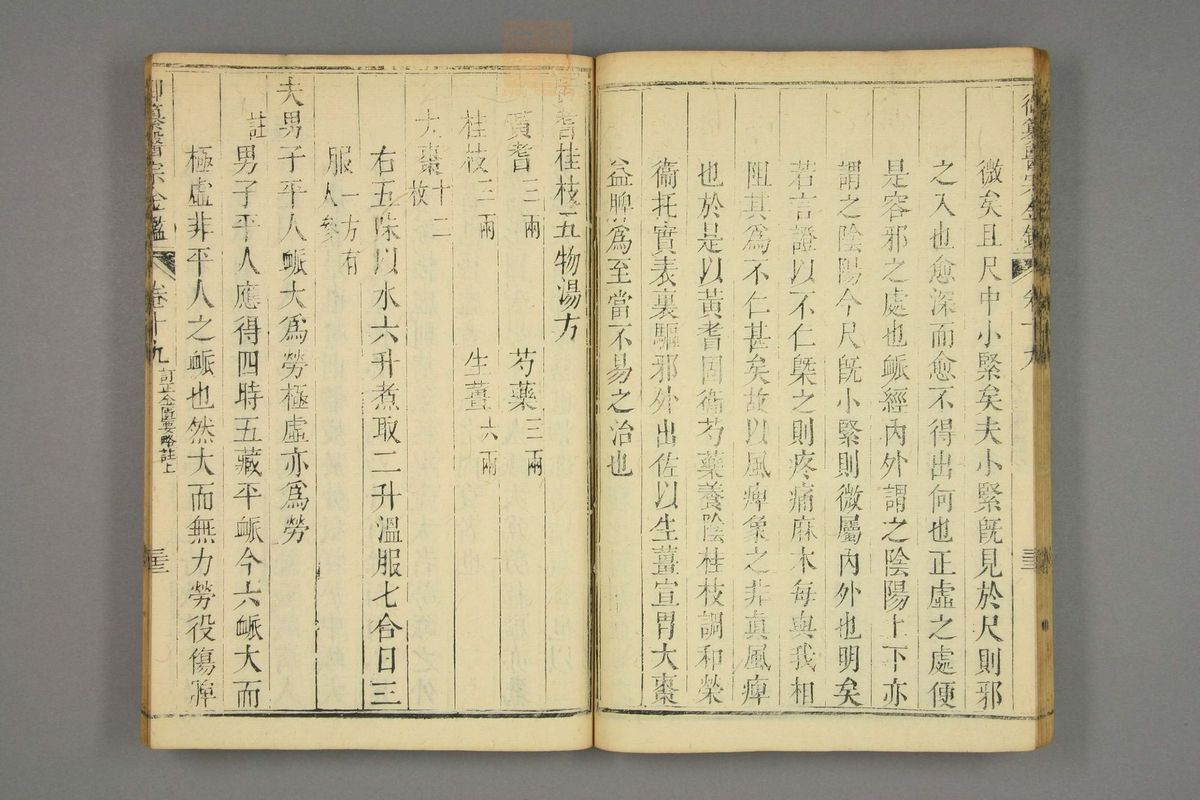 御纂醫宗金鑑 卷十九 三三
微矣且尺中小緊矣夫小緊既見於尺則邪
之入也愈深而愈不得出何也正虛之處便
是容邪之處也脈經內外謂之陰陽上下亦
謂之陰陽今尺既小緊則微屬內外也明矣
若言證以不仁槩之則疼痛麻木每與我相
阻其為不仁甚矣故以風痺象之非真風痺
也於是以黃耆固衛芍藥養陰桂枝調和榮
衞托實表裏驅邪外出佐以生薑宣胃大棗
益脾為至當不易之治也
黃耆桂枝五物湯方
黃耆三兩 芍藥三兩
桂枝三兩 生薑六兩
大棗十二枚
右五味以水六升煮取二升溫服七合日三
服一方有人參
夫男子平人脈大為勞極虛亦為勞
註男子平人應得四時五藏平脈今六脈大而
極虛非平人之脈也然大而無力勞役傷脾
御纂醫宗金鑑 卷十九 訂正金匱要略註上 三三